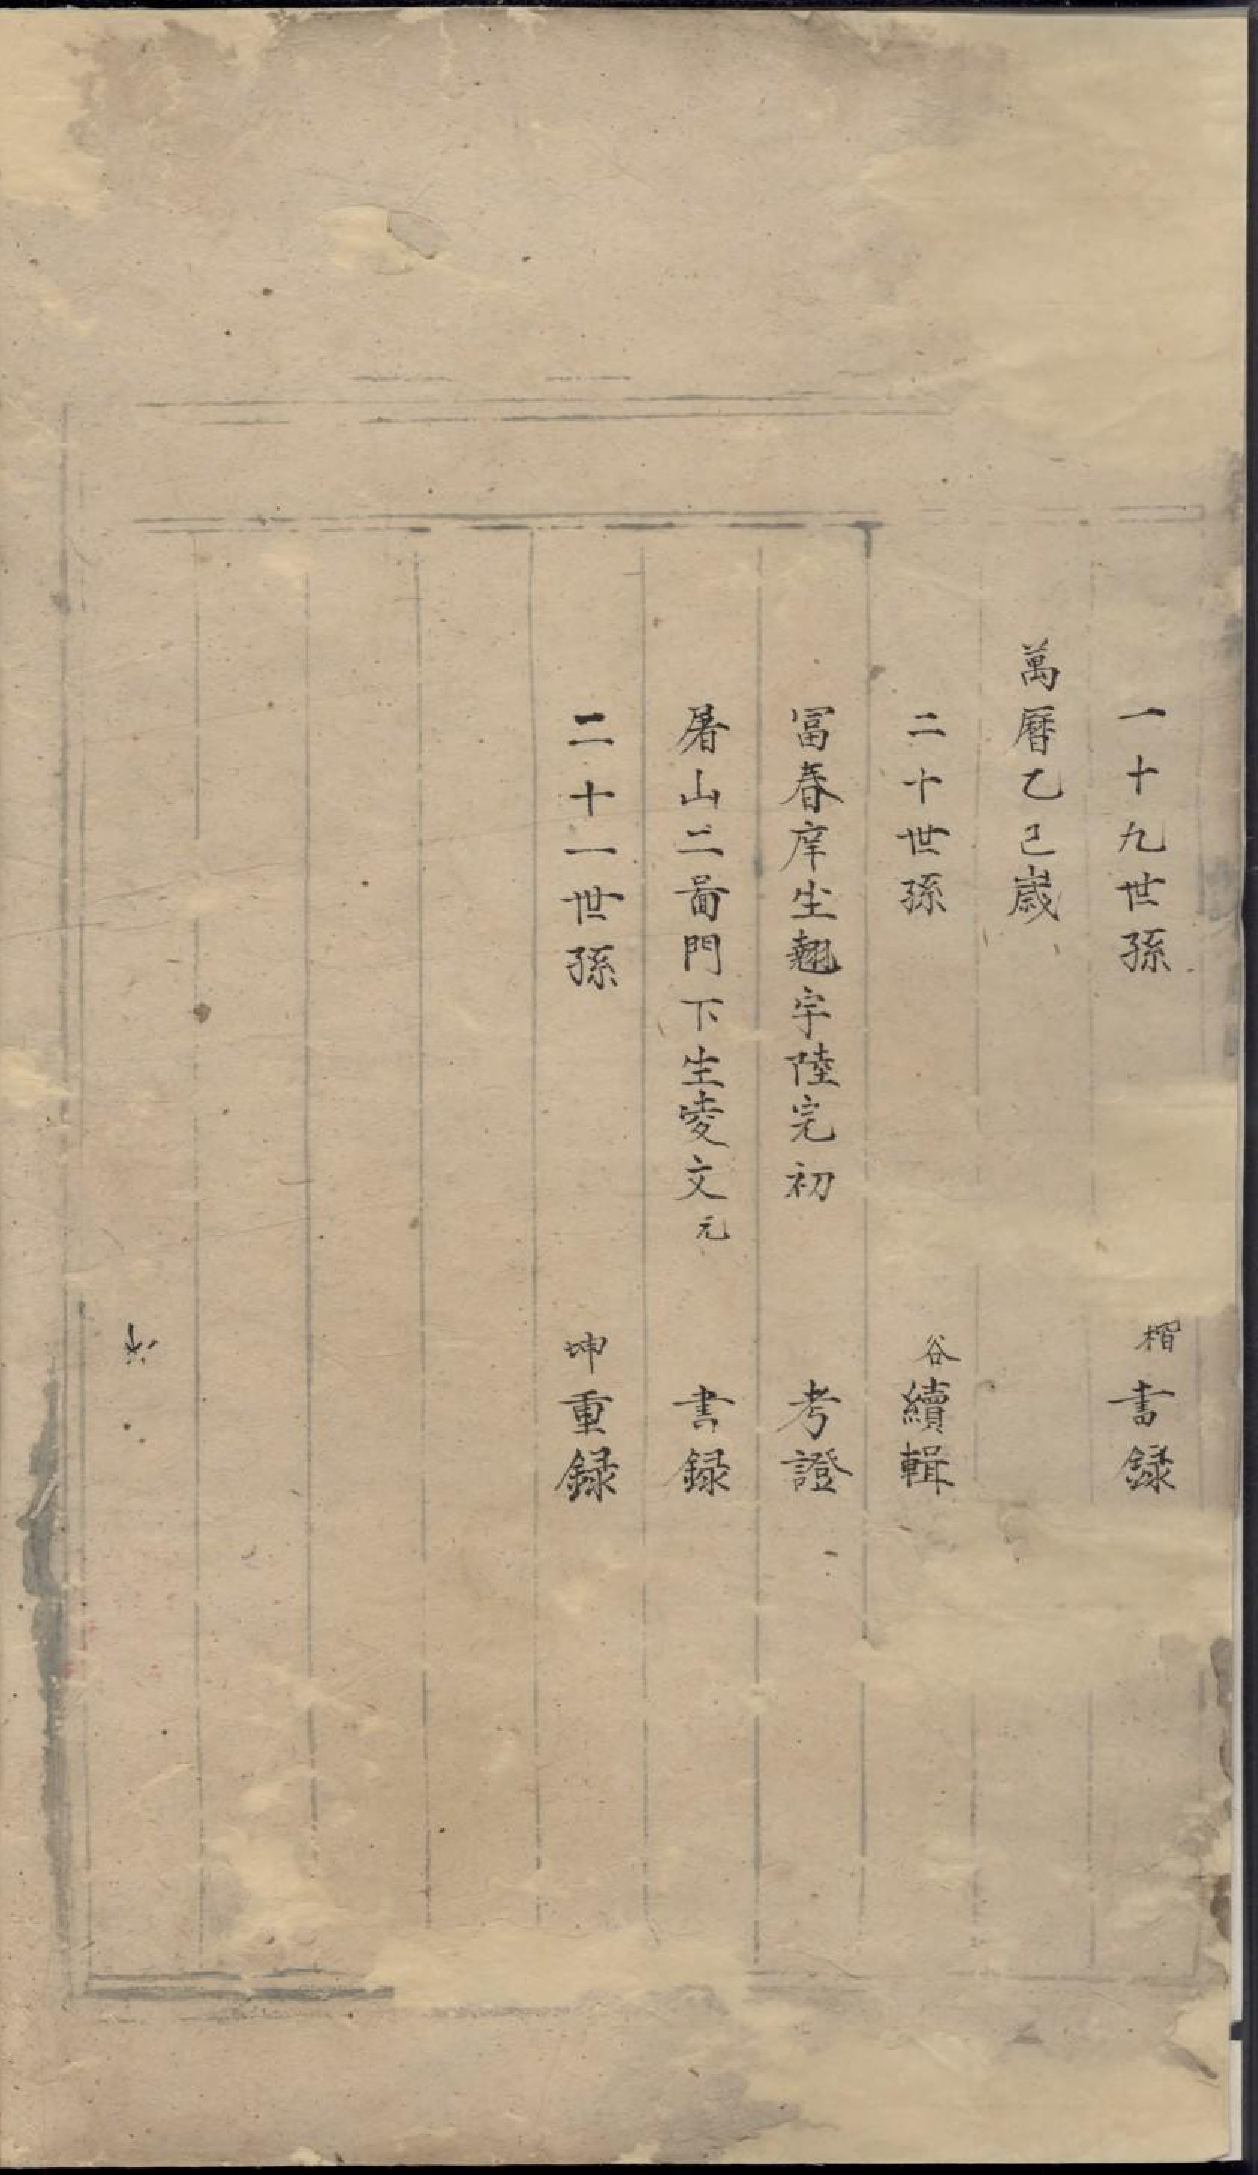 一十九世孫 楷書録
萬曆乙巳歲
二十世孫 谷續輯
冨春庠生翹宇陸完初 考證
屠山二畐門下生夌文元 書録
二十一世孫 坤重録